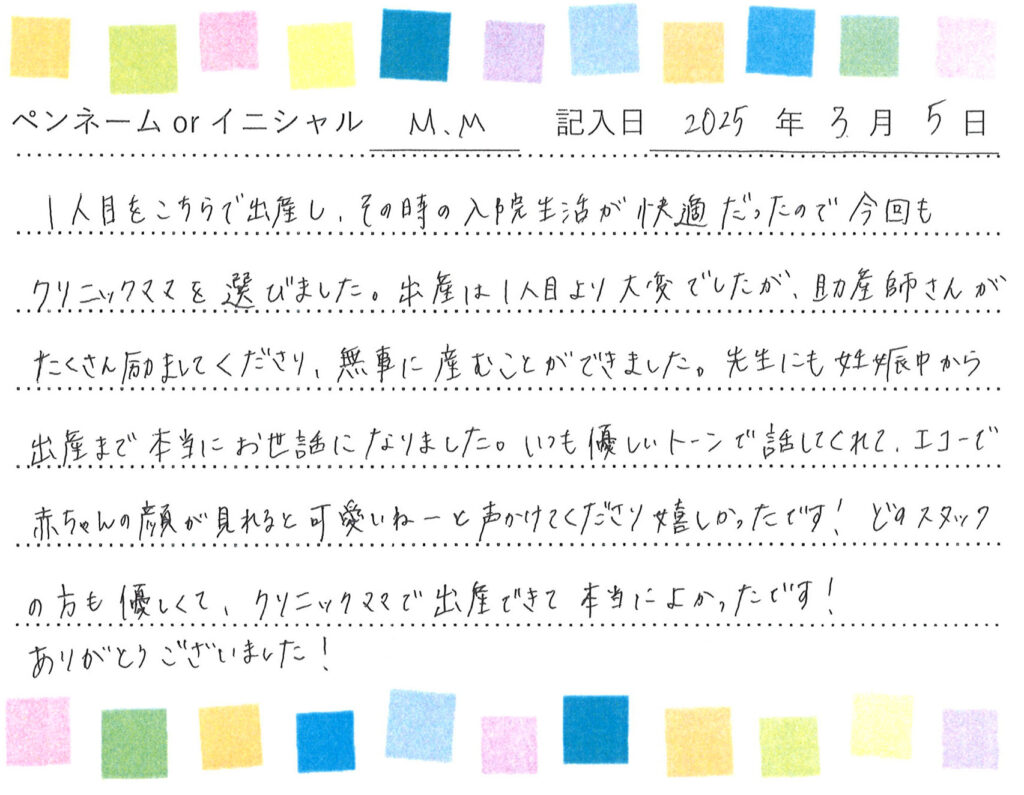 ペンネーム or イニシャル M.M 記入日 2025 年 3 月 5 日
1人目をこちらで出産し、その時の入院生活が快適だったので今回も
クリニックママを選びました。出産は1人目より大変でしたが、助産師さんが
たくさん励ましてくださり、無事に産むことができました。先生にも妊娠中から
出産まで本当にお世話になりました。いつも優しいトーンで話してくれて、エコーで
赤ちゃんの顔が見れると可愛いねーと声かけてくださり嬉しかったです！どのスタッフ
の方も優しくて、クリニックママで出産できて本当によかったです！
ありがとうございました！